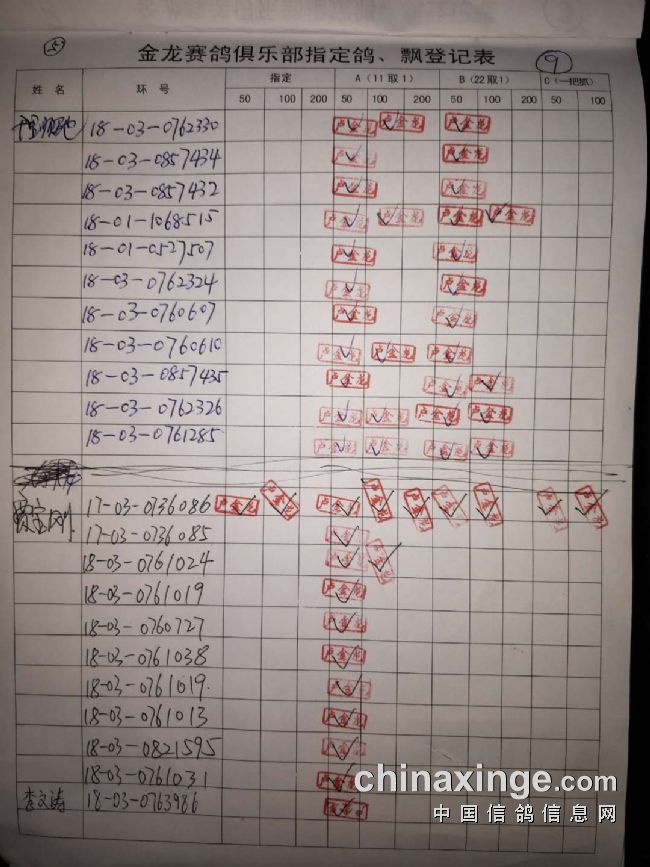 51
金龙赛鸽俱乐部指定鸽、飘登记表
9
姓 名 环 号 指定 A (11取1) B (22取1) C (一把抓)
50 100 200 50 100 200 50 100 200 50 100
18-03-0762330 卢金龙 卢金龙 卢金龙
18-03-0857434 卢金龙 卢金龙
18-03-0857432 卢金龙 卢金龙
18-01-1068515 卢金龙 卢金龙 卢金龙 卢金龙
18-01-0527507 卢金龙 卢金龙
18-03-0762324 卢金龙 卢金龙
18-03-0760607 卢金龙 卢金龙
18-03-0760610 卢金龙 卢金龙 卢金龙
18-03-0857435 卢金龙 卢金龙 卢金龙
18-03-0762326 卢金龙 卢金龙 卢金龙 卢金龙
18-03-0761285 卢金龙 卢金龙 卢金龙 卢金龙
贾宝刚 17-03-0736086 卢金龙 卢金龙 卢金龙 卢金龙 卢金龙 卢金龙 卢金龙 卢金龙 卢金龙
17-03-0736085 卢金龙
18-03-0761024 卢金龙 卢金龙
18-03-0761019 卢金龙
18-03-0760727 卢金龙
18-03-0761038 卢金龙
18-03-0761019. 卢金龙
18-03-0761013 卢金龙
18-03-0821595 卢金龙
18-03-0761031 卢金龙
李文涛 18-03-0763986 卢金龙
chinaxinge.com
中国信鸽信息网